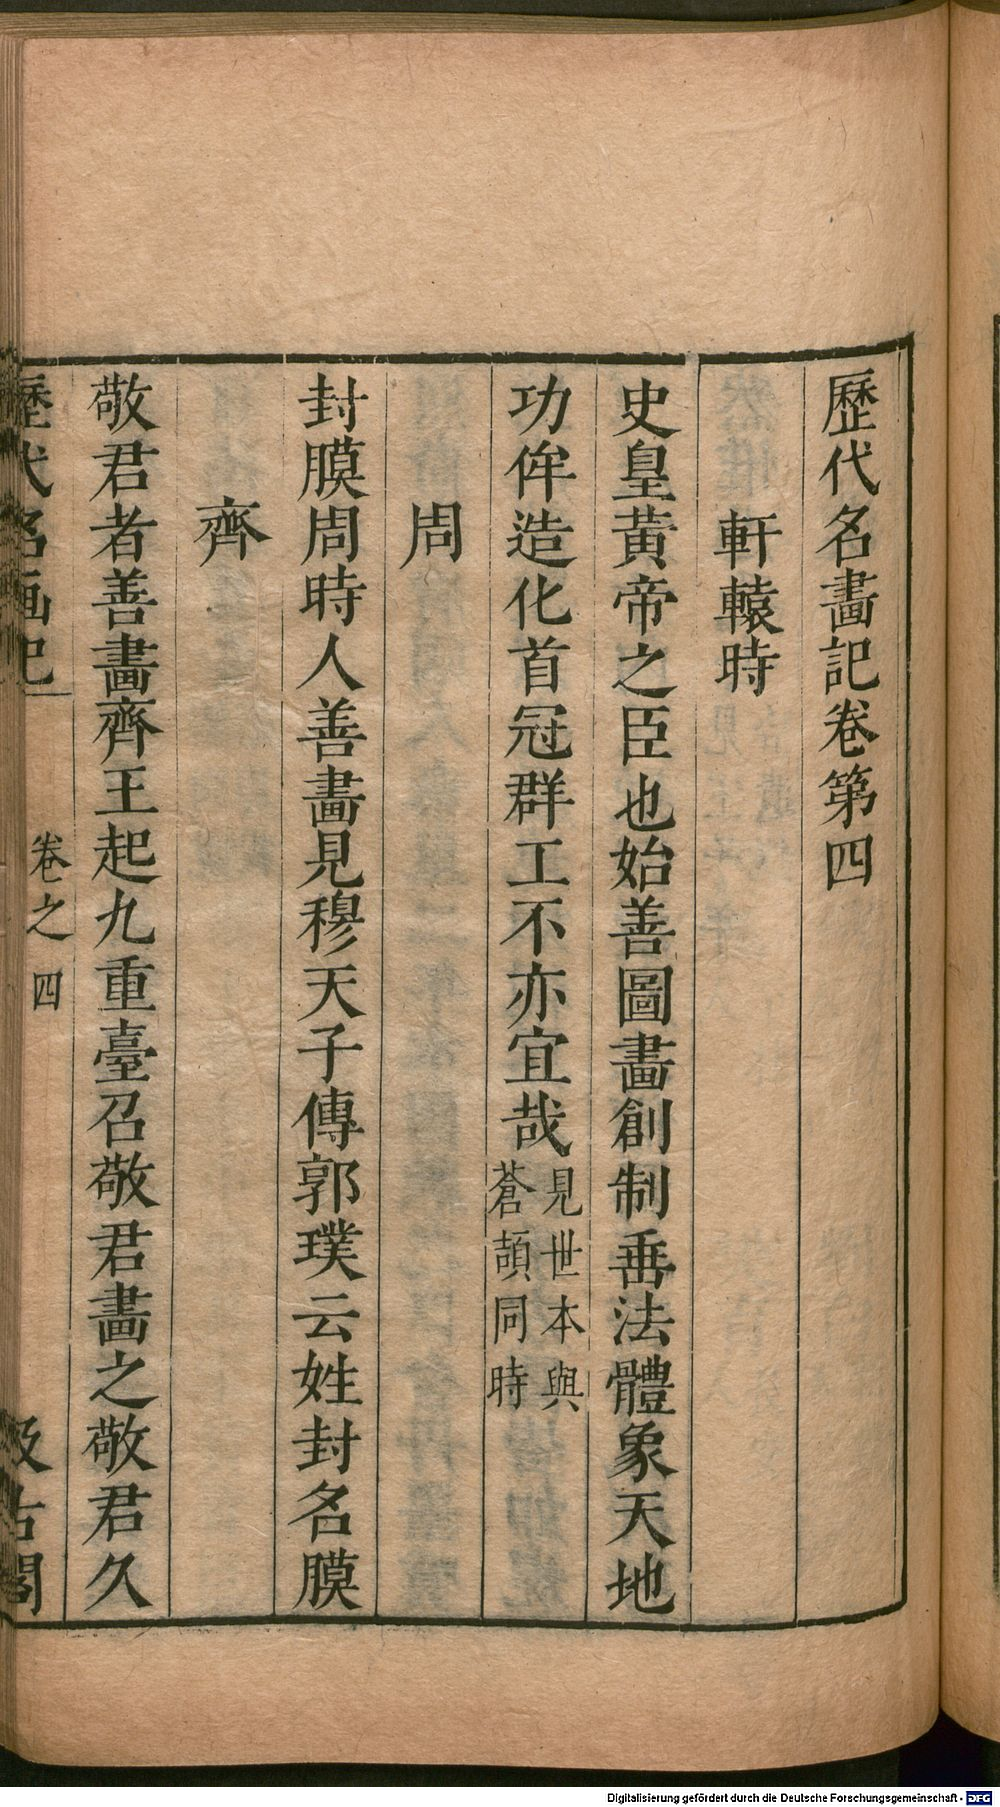 歷代名畫記卷第四
軒轅時
史皇黃帝之臣也始善圖畫創制垂法體象天地
功侔造化首冠群工不亦宜哉見世本與
蒼頡同時
周
封膜周時人善畫見穆天子傳郭璞云姓封名膜
齊
敬君者善畫齊王起九重臺召敬君畫之敬君久
歷代名画記
卷之四
汲古閣
Digitalisierung gefördert durch die Deutsche Forschungsgemeinschaft - DFG